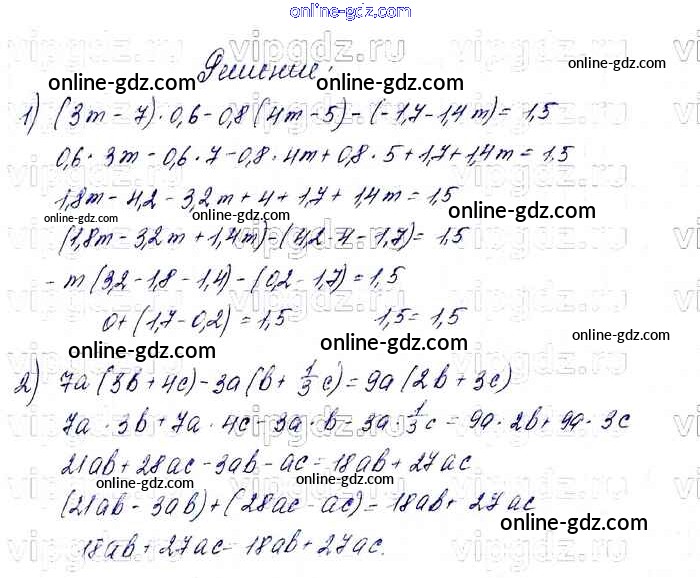 online-gdz.com
Решение:
online-gdz.com online-gdz.com
1) (3m - 7) · 0,6 - 0,8 (4m - 5) - (-1,7 - 1,4m) = 1,5
0,6 · 3m - 0,6 · 7 - 0,8 · 4m + 0,8 · 5 + 1,7 + 1,4m = 1,5
1,8m - 4,2 - 3,2m + 4 + 1,7 + 1,4m = 1,5
online-gdz.com online-gdz.com online-gdz.com
(1,8m - 3,2m + 1,4m) - (4,2 - 4 - 1,7) = 1,5
- m (3,2 - 1,8 - 1,4) - (0,2 - 1,7) = 1,5
0 + (1,7 - 0,2) = 1,5 1,5 = 1,5
online-gdz.com online-gdz.com
2) 7a (3b + 4c) - 3a (b + 1/3 c) = 9a (2b + 3c)
7a · 3b + 7a · 4c - 3a · b - 3a · 1/3 c = 9a · 2b + 9a · 3c
online-gdz.com
21ab + 28ac - 3ab - ac = 18ab + 27ac
online-gdz.com online-gdz.com
(21ab - 3ab) + (28ac - ac) = 18ab + 27ac
online-gdz.com
18ab + 27ac = 18ab + 27ac.